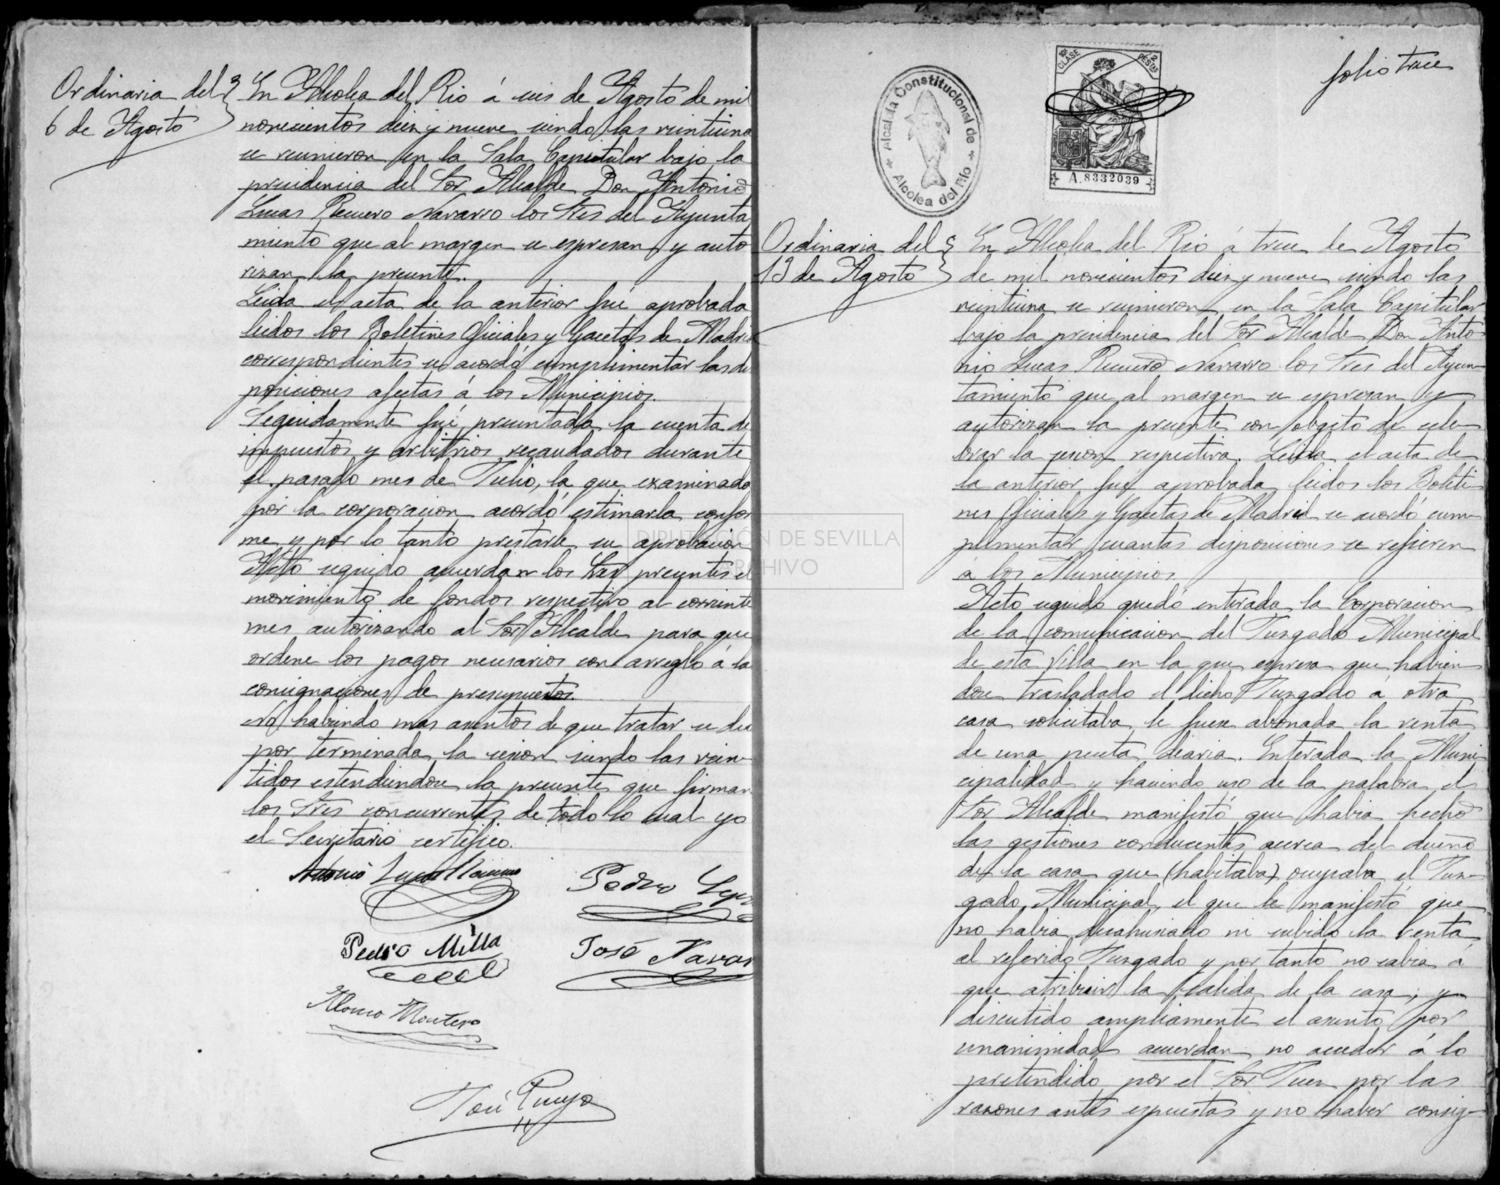 Ordinaria del
6 de Agosto
En Alcolea del Rio á seis de Agosto de mil
novecientos diez y nueve siendo las veintiuna
se reunieron en la Sala Capitular bajo la
presidencia del Sor Alcalde Don Antonio
Lucas Recuero Navarro los Sres del Ayunta
miento que al margen se espresan y auto
rizan la presente.
Leida el acta de la anterior fué aprobada
leidos los Boletines Oficiales y Gacetas de Madrid
correspondientes se acordó cumplimentar las dis
posiciones afectas á los Municipios.
Seguidamente fué presentada la cuenta de
impuestos y arbitrios recaudados durante
el pasado mes de Julio, la que examinada
por la corporacion acordó estimarla confor
me y por lo tanto prestarle su aprobacion
Acto seguido acuerdan los Sres presentes el
movimiento de fondos respectivo al corriente
mes autorizando al Sor Alcalde para que
ordene los pagos necesarios con arreglo á la
consignaciones de presupuestos.
No habiendo mas asuntos de que tratar se dió
por terminada la sesion siendo las vein-
tidos estendiendose la presente que firman
los Sres concurrentes de todo lo cual yo
el Secretario certifico.
Antonio Lucas
Pedro
Pedro Milla
José Navar
Alonso Montero
José
folio trece
CLASE
PESETAS
A.8332039
Alcaldia Constitucional de
Alcolea del Rio
Ordinaria del
13 de Agosto
En Alcolea del Rio á trece de Agosto
de mil novecientos diez y nueve siendo las
veintiuna se reunieron en la Sala Capitular
bajo la presidencia del Sor Alcalde Don Anto-
nio Lucas Recuero Navarro los Sres del Ayun-
tamiento que al margen se espresan y
autorizan la presente con obgeto de cele-
brar la sesion respectiva. Leida el acta de
la anterior fué aprobada leidos los Boleti
nes Oficiales y Gacetas de Madrid se acordó cum-
plimentar cuantas disposiciones se refieren
a los Municipios.
Acto seguido quedó enterada la Corporacion
de la comunicacion del Juzgado Municipal
de esta Villa en la que espresa que habien
dose trasladado el dicho Juzgado á otra
casa solicitaba le fuera abonada la renta
de una peseta diaria. Enterada la Muni
cipalidad y haciendo uso de la palabra el
Sor Alcalde manifestó que habia hecho
las gestiones conducentes acerca del dueño
de la casa que (habitaba) ocupaba el Juz-
gado Municipal, el que le manifestó que
no habia desahuciado ni subido la renta
al referido Juzgado y por tanto no sabia á
que atribuir la salida de la casa; y
discutido ampliamente el asunto por
unanimidad acuerdan no acceder á lo
pretendido por el Sor Juez por las
razones antes espuestas y no haber consig-
DIPUTACIÓN DE SEVILLA
ARCHIVO